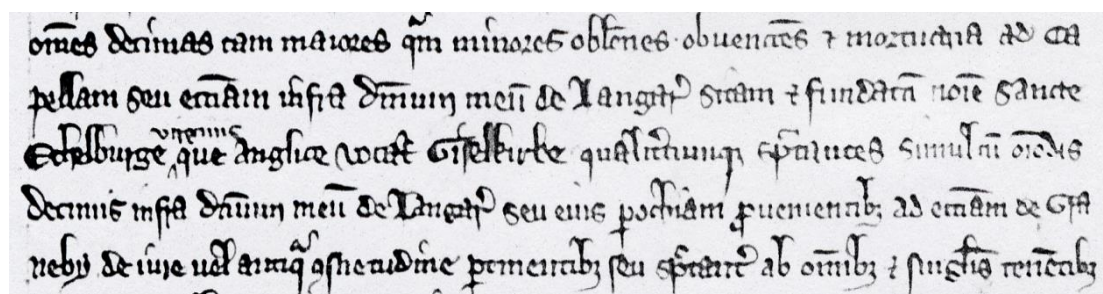 om̄es decimas tam maiores qͣm minores obl̄ones obvenc̄oes ⁊ mortuaria ad Ca
pellam seu eccl̄iam infra dn̄ium meū de Langar̉ sitam ⁊ fundatā noīe Sancte
Ethelburge virginis que Anglice vocat̉ Gisselkirke qualit̉cumq; sp̄tantes simul cū oīm̄dis
decimis infra dn̄ium meū de Langar̉ seu eius ꝑochiam ꝓvenientib; ad eccl̄iam de Gra
neby de iure vel antiqͣ ꝯsuetudine ꝑtinentib; seu sp̄tant̉ ab om̄ib; ⁊ singl̄is tenētib;